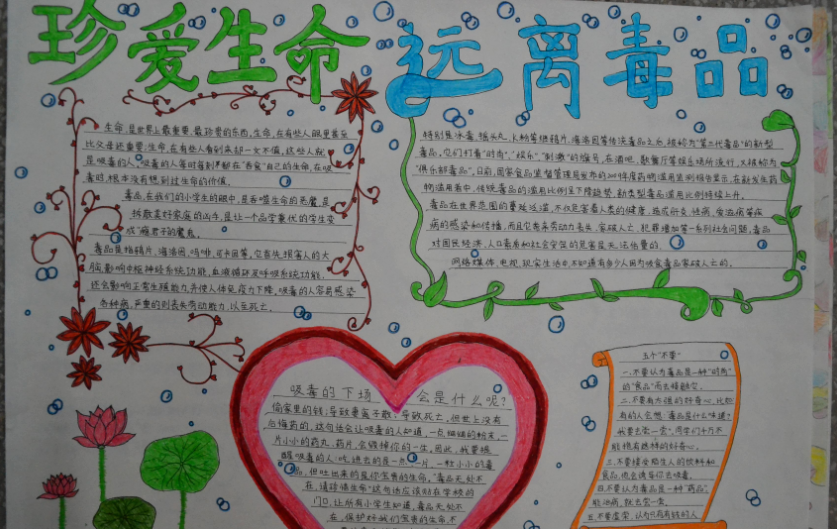 珍爱生命 远离毒品
生命，是世界上最重要、最珍贵的东西，生命，在有些人眼里甚至
比父母还重要；生命，在有些人看到底却一文不值，这些人就
是吸毒的人，吸毒的人等时每刻早都在"吞食"自己的生命，在吸
毒时，根本没有想到过生命的价值。
毒品，在我们的小学生的眼中，是吞噬生命的恶魔，是
拆散美好家庭的凶手，是让一个品学兼优的学生变
成"瘾君子的魔鬼。
毒品是指鸦片、海洛因、吗啡、可卡因等，它首先损害人的大
脑，影响中枢神经系统功能、血液循环及呼吸系统功能，
还会影响正常生殖能力，并使人体免疫力下降，吸毒的人容易感染
各种病，严重的则丧失劳动能力，以至死亡。
特别是冰毒、摇头丸、K粉等继鸦片、海洛因等传统毒品之后，被称为"第三代毒品"的新型
毒品，它们打着"时尚"、"娱乐"、"刺激"的幌号，在酒吧、歌舞厅等娱乐场所流行，又被称为
"俱乐部毒品"。日前，国家食品监督管理局发布的2009年度药物滥用监测报告显示，在新发生药
物滥用者中，传统毒品的滥用比例呈下降趋势，新类型毒品滥用比例持续上升。
毒品在世界范围的蔓延泛滥，不仅危害着人类的健康，造成肝炎、性病、爱滋病等疾
病的感染和传播，而且它丧失劳动力丧失、家破人亡、犯罪增加等一系列社会问题，毒品
对国民经济、人口素质和社会安定的危害是无法估量的。
网络媒体、电视、现实生活中，不知道有多少人因为吸食毒品家破人亡的。
吸毒的下场 会是什么呢？
偷家里的钱；导致妻离子散；导致死亡，但世上没有
后悔药的，这句话会让吸毒的人知道，一点细细的粉末，一
片小小的药丸、药片，会毁掉你的一生，因此，我要提
醒吸毒的人：吃进去的是一点、一片、一粒小小的毒
品，但吐出来的是你宝贵的生命。"毒品无处不
在，请珍惜生命"这句话应该贴在学校的
门口，让所有小学生知道，毒品无处不
在，保护好我们宝贵的生命，不
五个"不要"
一、不要认为毒品是一种"时尚"
的"食品"而去接触它。
二、不要有太强的好奇心，比如
有的人会想：毒品是什么味道？
我要去尝一尝，同学们千万不
能抱有这样的好奇心。
三、不要接受陌生人的饮料和
食品，他会诱导你去吸毒。
四、不要认为毒品是一种"药品"，
能治病，就去尝一尝。
五、不要虚荣，认为只有有钱的人